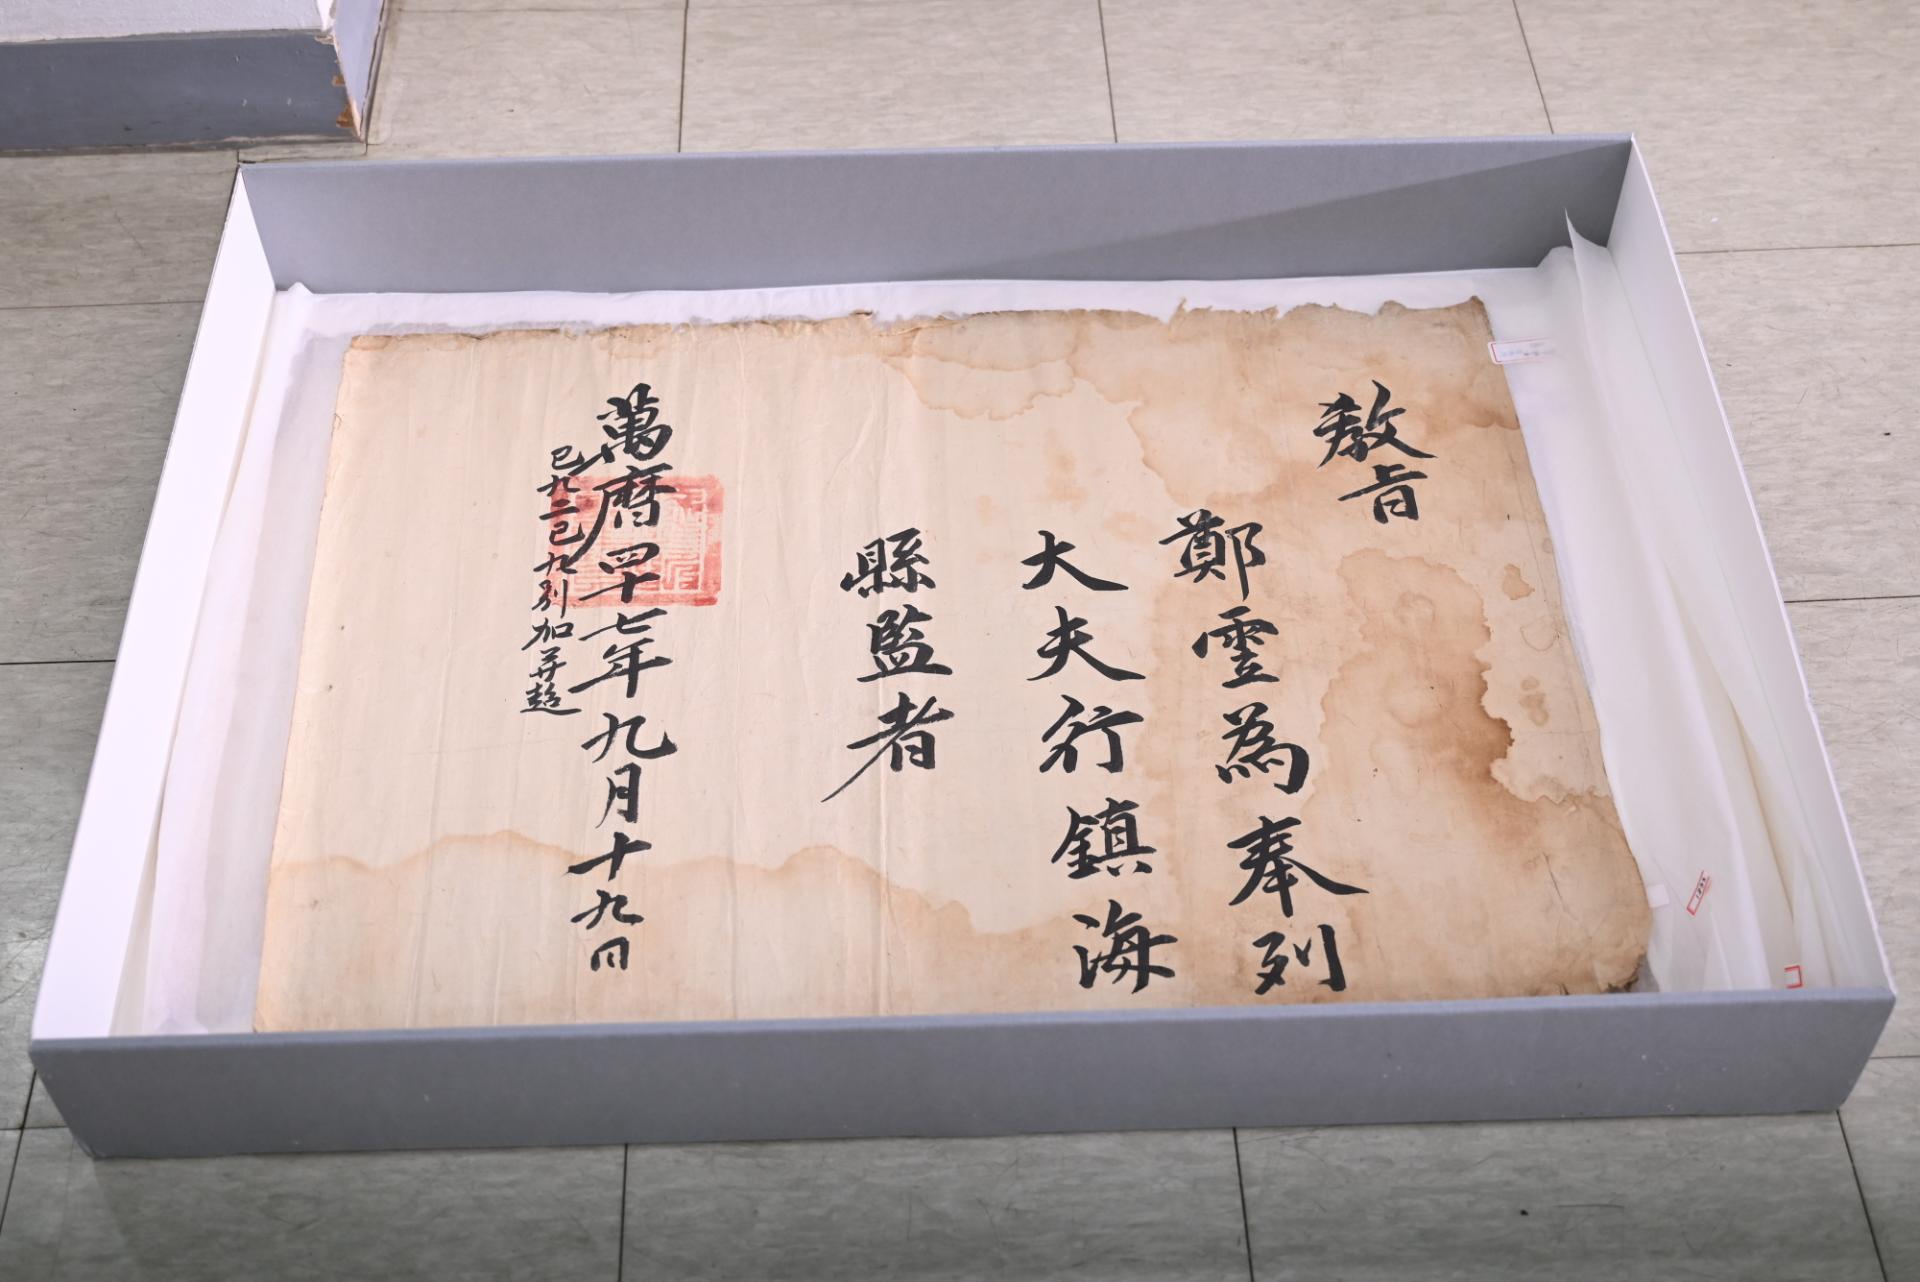 教旨
鄭雲為奉列
大夫行鎮海
縣監者
萬曆四十七年九月十九日
己九二己九別加并超